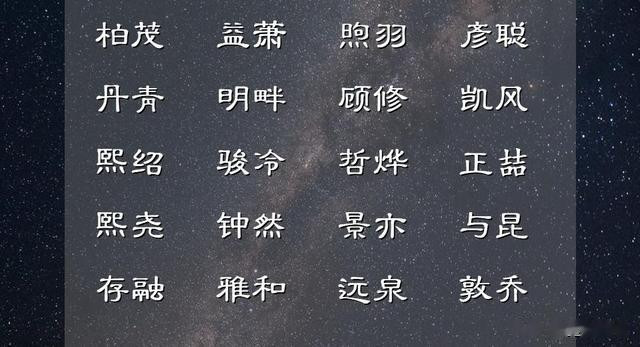 柏茂 益萧 煦羽 彦聪
丹青 明畔 顾修 凯风
熙绍 骏冷 哲烨 正喆
熙尧 钟然 景亦 与昆
存融 雅和 远泉 敦乔